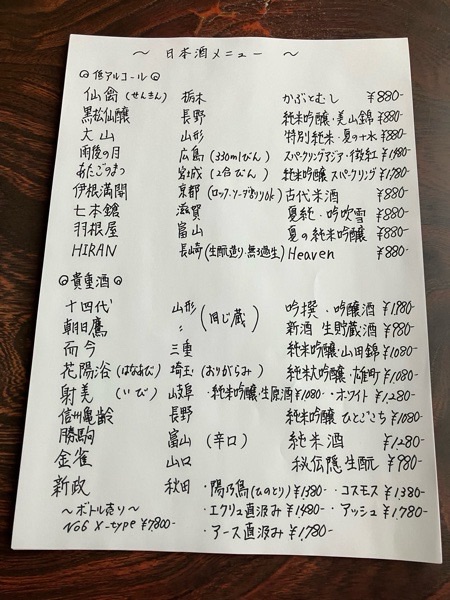 ～ 日本酒メニュー ～
◎ 低アルコール ◎
仙禽 (せんきん) 栃木 かぶとむし ¥880-
黒松仙醸 長野 純米吟醸・美山錦 ¥880-
大山 山形 特別純米・夏の十水 ¥880-
雨後の月 広島 (330mlびん) スパークリング ・微紅 ¥1,480-
あたごのまつ 宮城 (2合びん) 純米吟醸 スパークリング ¥1,780-
伊根満開 京都 (ロック・ソーダ割りOK) 古代米酒 ¥880-
七本鎗 滋賀 夏純・吟吹雪 ¥880-
羽根屋 富山 夏の純米吟醸 ¥880-
HIRAN 長崎 (生酛造り・無ろ過生) Heaven ¥880-
◎ 貴重酒 ◎
十四代 山形 (同じ蔵) 吟撰・吟醸酒 ¥1,980-
朝日鷹 〃 新酒 生貯蔵酒 ¥980-
而今 三重 純米吟醸・山田錦 ¥1080-
花陽浴 (はなあび) 埼玉 (おりがらみ) 純米大吟醸・雄町 ¥1,080-
射美 (いび) 岐阜 ・純米吟醸・生原酒 ¥1080- ・ホワイト ¥1,280-
信州亀齢 長野 純米吟醸 ひとごこち ¥1080-
勝駒 富山 (辛口) 純米酒 ¥1,280-
金雀 山口 秘伝隠生酛 ¥980-
新政 秋田 ・陽乃鳥 (ひのとり) ¥1380- ・コスモス ¥1,380-
～ボトル売り～ ・エクリュ直汲み ¥1,480- ・アッシュ ¥1,780-
No6 X-type ¥7,800- ・アース直汲み ¥1,780-